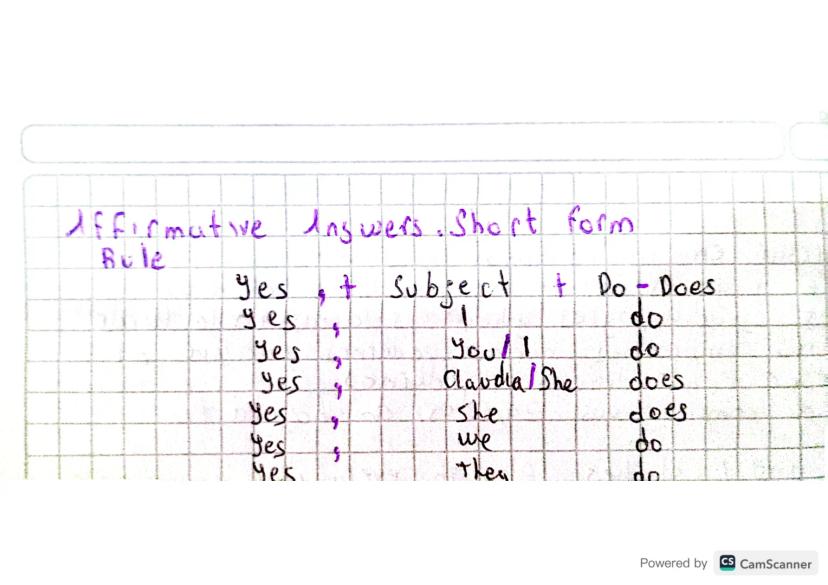 Affirmative Answers. Short form
Rule
Yes , + Subject + Do - Does
Yes , I do
Yes , You / I do
Yes , Claudia / She does
Yes , She does
Yes , we do
Yes They do
Powered by CS CamScanner